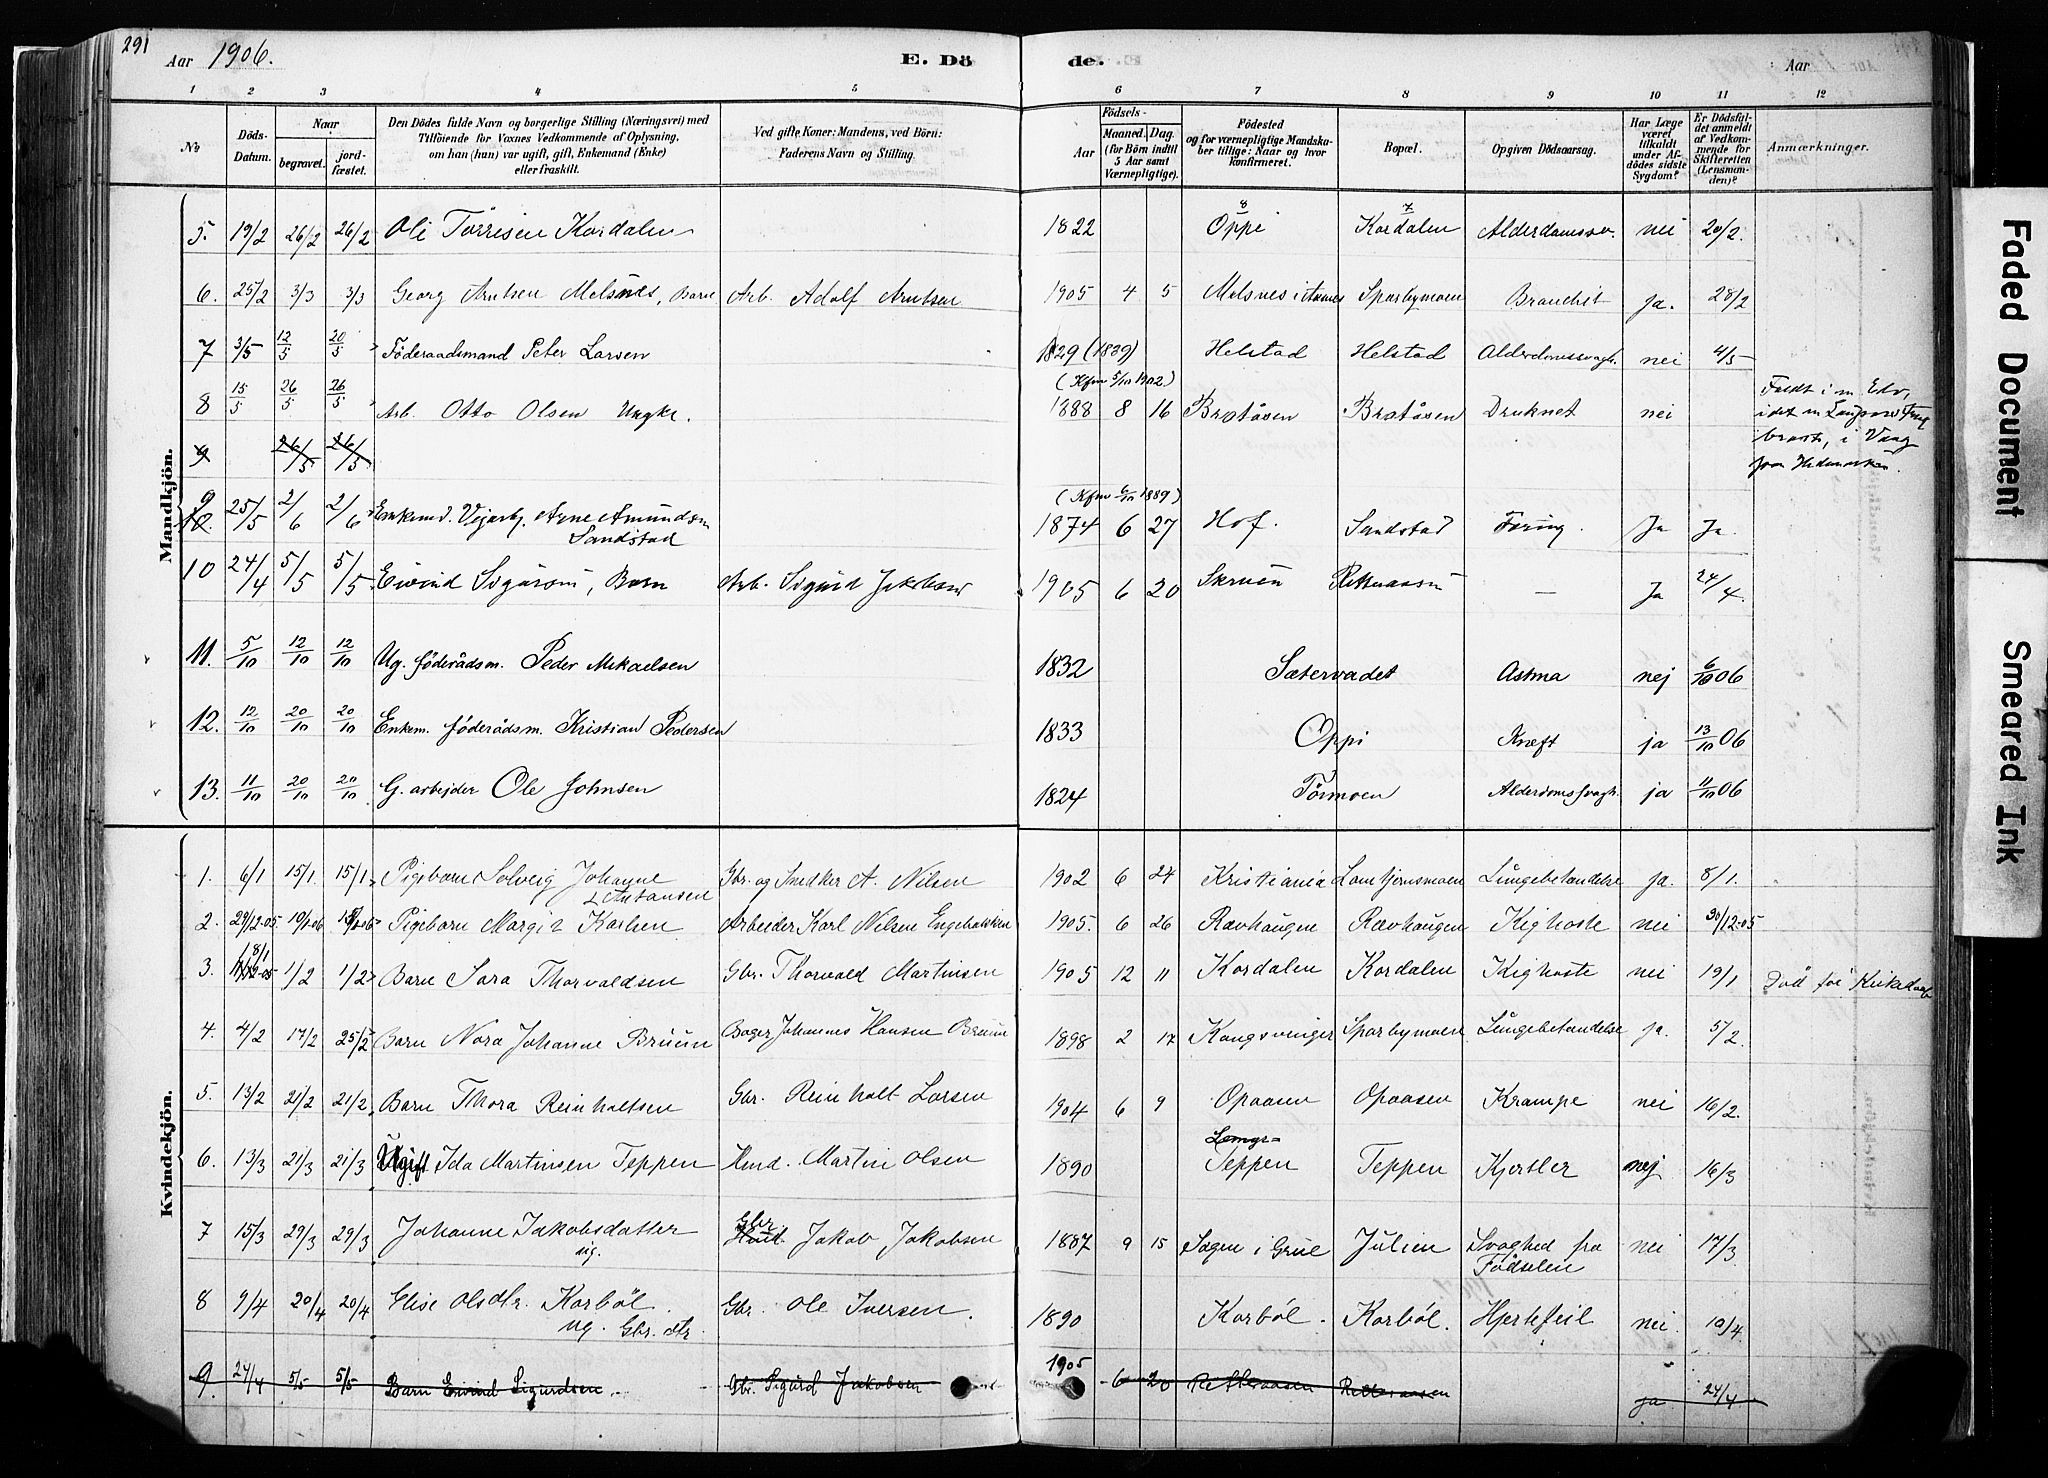 291
Aar 1906. E. Dö de. Aar
1 2 3 4 5 6 7 8 9 10 11 12
No
Döds-Datum.
Naar
begravet.
jordfæstet.
Den Dödes fulde Navn og borgerlige Stilling (Næringsvei) med
Tilföiende for Voxnes Vedkommende af Oplysning,
om han (hun) var ugift, gift, Enkemand (Enke)
eller fraskilt.
Ved gifte Koner: Mandens, ved Börn:
Faderens Navn og Stilling.
Födsels-
Aar
Maaned. Dag.
(for Börn indtil
5 Aar samt
Værnepligtige).
Födested
og for værnepligtige Mandska-
ber tillige: Naar og hvor
konfirmeret.
Bopæl.
Opgiven Dödsaarsag.
Har Læge
været
tilkaldt
under Af-
dödes sidste
Sygdom?
Er Dödsfal-
det anmeldt
af Vedkom-
mende for
Skifteretten
(Lensman-
den)?
Anmærkninger.
Mandkjön.
5. 19/2 26/2 26/2 Ole Törrisen Kordalen 1822 8 Oppi 7 Kordalen Alderdomssv. nei 20/2.
6. 25/2 3/3 3/3 Georg Arntsen Melsnes, Barn Arb. Adolf Arntsen 1905 4 5 Melsnes i Aasnes Sparbymoen Bronchit ja. 28/2
7 3/5 12/5 20/5 Föderaadsmand Peter Larsen 1829 (1839) Helstad Helstad Alderdomssvagh. nei 4/5
8 15/5 26/5 26/5 Arb. Otto Olsen Ungk. (Kfm 5/10 1902.) 1888 8 16 Bratåsen Bratåsen Druknet nei
Faldt i m Elv,
i det m
brast, i Vaag
fra Hedemarken.
9 26/5 26/5
9 10 25/5 2/6 2/6 Enkemd. Vejarb. Arne Amundsen (Kfm 6/10 1889) 1874 6 27 Hof. Sandstad Tæring. Ja Ja
Sandstad
10 24/4 5/5 5/5 Eivind Sigursen, Barn Arb. Sigurd Jakobsen 1905 6 20 Skruen Rettaasen — Ja 24/4.
11. 5/10 12/10 12/10 Ug. föderådsm. Peder Mikaelsen 1832 Sætervadet Astma nej 6/10 06
12. 12/10 20/10 20/10 Enkem. föderådsm. Kristian Pedersen 1833 Oppi Kræft ja 13/10 06
13. 11/10 20/10 20/10 G. arbejder Ole Johnsen 1824 Törmoen Alderdomssvagh. ja 11/10 06
Kvindekjön.
1. 6/1 15/1 15/1 Pigebarn Solveig Johanne Gbr. og Snedker A. Nilsen 1902 6 24 Kristiania Lomtjernsmoen Lungebetændelse ja. 8/1.
Antonsen
2. 29/12-05 19/1-06 19/1-06 Pigebarn Margit Karlsen Arbeider Karl Nilsen Engebakken 1905. 6 26 Ravhaugen Ravhaugen Kighoste nei 30/12-05
3. 8/1 1/2 1/2 Barn Sara Thorvaldsen Gbr. Thorvald Martinsen 1905 12 11 Kordalen Kordalen Kighoste nei 19/1 Död för Kirkedaab
4. 4/2 17/2 25/2 Barn Nora Johanne Bruun Bager Johannes Hansen Bruun 1898 2 17 Kongsvinger Sparbymoen Lungebetændelse ja. 5/2.
5. 13/2 21/2 21/2 Barn Thora Reinholtsen Gbr. Reinholt Larsen 1904 6 9 Opaasen Opaasen Krampe nei 16/2.
6. 13/3 21/3 21/3 Ugift Ida Martinsen Teppen Hmd. Martin Olsen 1890 Teppen Teppen Kjertler nej 16/3
7 15/3 29/3 29/3 Johanne Jakobsdatter Gbr Hmd. Jakob Jakobsen 1887 9 15 Sagen i Grue Julien Svaghed fra nei 17/3
ug. Födselen
8 9/4 20/4 20/4 Elise Olsdtr. Korböl. Gbr. Ole Iversen. 1890 Korböl. Korböl. Hjertefeil nei 10/4.
ug. Gbr. dtr.
9. 24/4 5/5 5/5 Barn Eivind Sigurdsen. Gbr. Sigurd Jakobsen 1905 6 20 Rettaasen Rettaasen ja 24/4
Faded Document
Smeared Ink